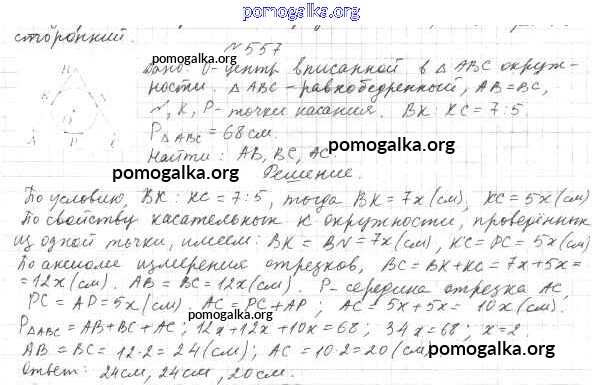 pomogalka.org
сторонний.
№557
pomogalka.org
Дано: О-центр вписанной в △ABC окруж-
ности. △ABC - равнобедренный, AB=BC,
N, K, P - точки касания. BK:KC=7:5.
pomogalka.org
P△ABC = 68см.
Найти: AB, BC, AC.
pomogalka.org
Решение.
pomogalka.org
По условию, BK:KC=7:5, тогда BK=7x(см), KC=5x(см)
По свойству касательных к окружности, проведённых
из одной точки, имеем: BK=BN=7x(см), KC=PC=5x(см)
По аксиоме измерения отрезков, BC=BK+KC=7x+5x=
=12x(см). AB=BC=12x(см). P-середина отрезка AC,
PC=AP=5x(см). AC=PC+AP; AC=5x+5x=10x(см).
pomogalka.org
P△ABC=AB+BC+AC; 12x+12x+10x=68; 34x=68; x=2.
AB=BC=12·2=24(см); AC=10·2=20(см)
pomogalka.org
Ответ: 24см, 24см, 20см.